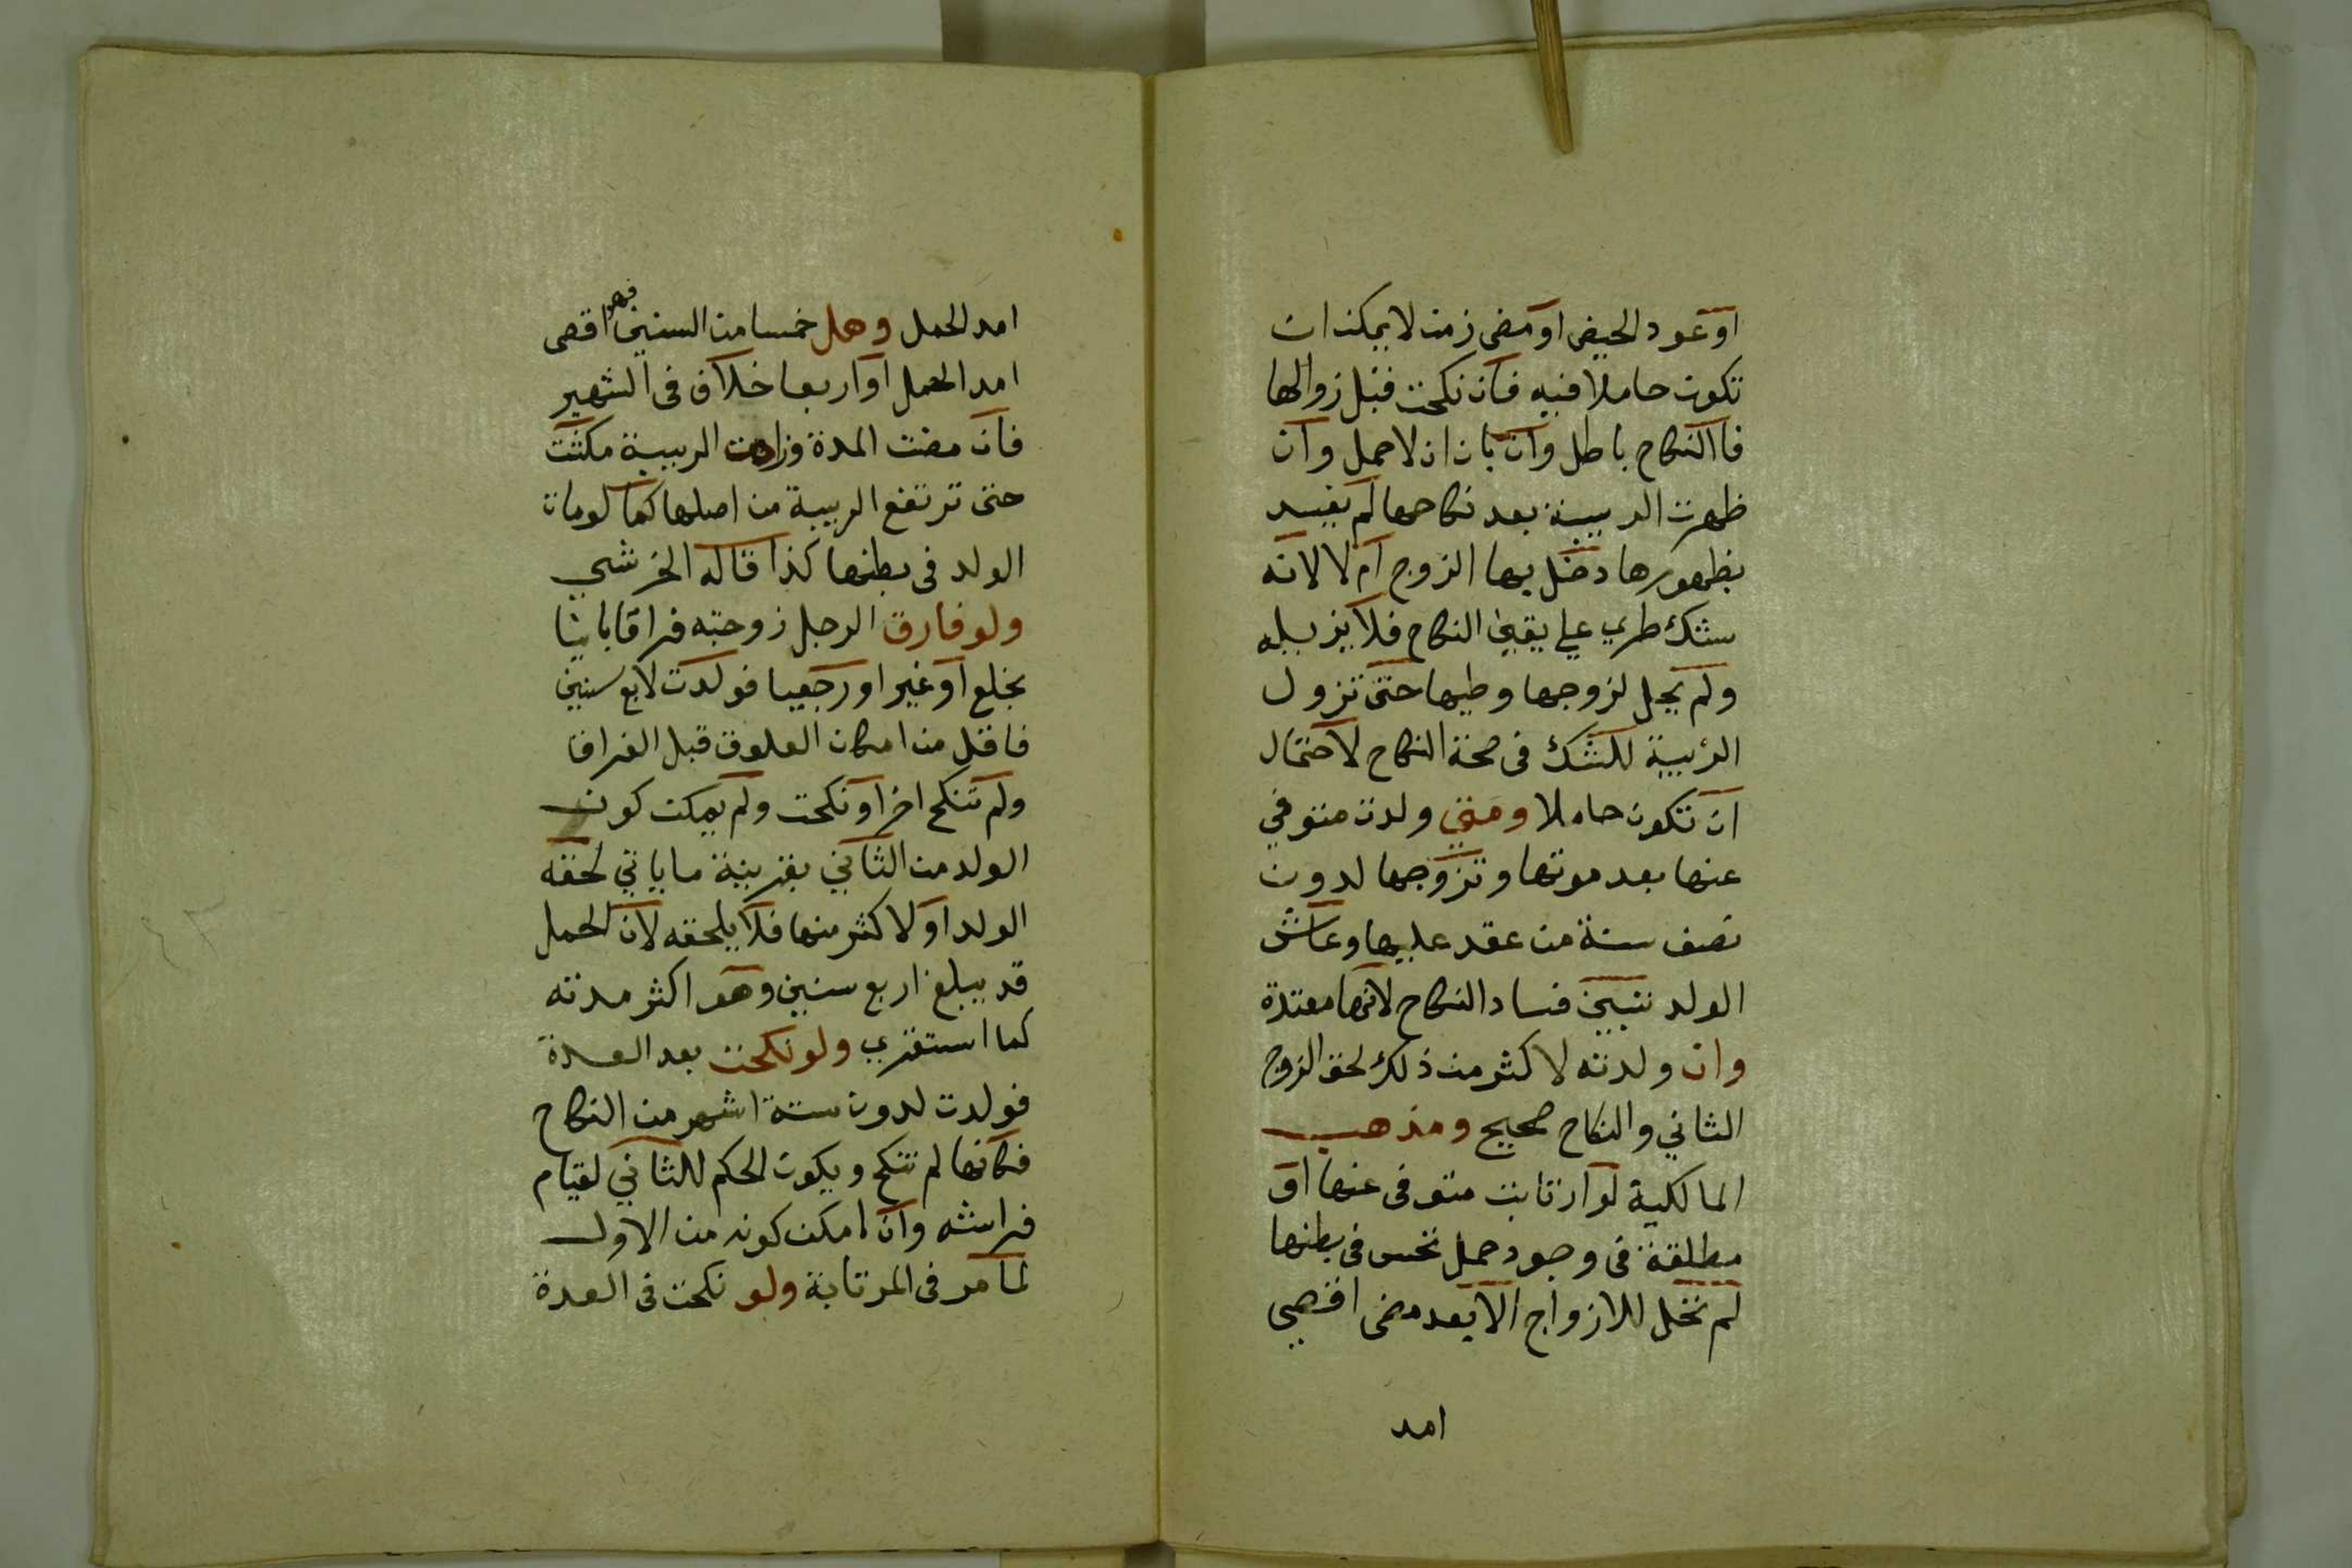 او عود الحيض او مضى زمن لا يمكن ان
تكون حاملا فيه فان نكحت قبل زوالها
فاالنكاح باطل وان بان ان لا حمل وان
ظهرت الريبة بعد نكاحها لم يفسد
بظهورها دخل بها الزوج ام لا لانه
شك طري علي يقين النكاح فلا يزيله
ولم يحل لزوجها وطيها حتى تزول
الريبة للشك فى صحة النكاح لاحتمال
ان تكون حاملا ومتي ولدت متوفي
عنها بعد موتها وتزوجها لدون
نصف سنة من عقد عليها وعاش
الولد تبين فساد النكاح لانها معتدة
وان ولدته لاكثر من ذلك لحق الزوج
الثاني والنكاح صحيح ومذهب
المالكية لو ارتابت متوفى عنها او
مطلقة فى وجود حمل تحس فى بطنها
لم تحل للازواج الا بعد مضى اقصي
امد
امد الحمل وهل خمسا من السنين فهو اقصى
امد الحمل او اربعا خلاف فى الشهير
فان مضت المدة وزادت الريبة مكثت
حتى ترتفع الريبة من اصلها كما لو مات
الولد فى بطنها كذا قاله الخرشي
ولو فارق الرجل زوجته فراقا باينا
بخلع او غير او رجعيا فولدت لاربع سنين
فاقل من امكان العلوق قبل الفراق
ولم تنكح اخر او نكحت ولم يمكن كون
الولد من الثاني بقرينة ما ياتي لحقه
الولد او لاكثر منها فلا يلحقه لان الحمل
قد يبلغ اربع سنين وهو اكثر مدته
كما استقري ولو نكحت بعد العدة
فولدت لدون ستة اشهر من النكاح
فكانها لم تنكح ويكون الحكم للثاني لقيام
فراشه وان امكن كونه من الاول
لما مر فى المرتابة ولو نكحت فى العدة